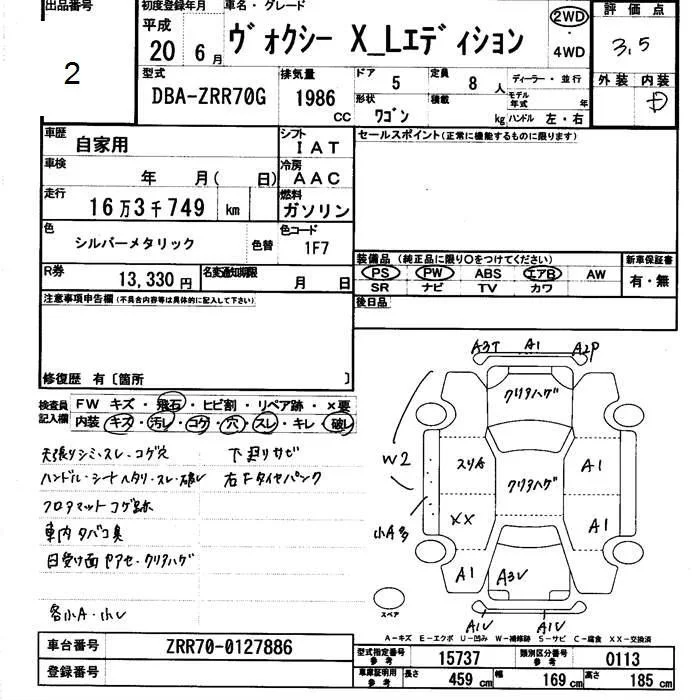 出品番号
2
初度登録年月
平成
20 6 月
車名・グレード
ヴォクシー X_Lエディション
2WD
・
4WD
評価点
3.5
外装 内装
D
型式
DBA-ZRR70G
排気量
1986
CC
ドア
5
定員
8 人
ディーラー・並行
モデル
年式 年
形状
ワゴン
積載
kg
ハンドル 左・右
車歴
自家用
シフト
IAT
セールスポイント(正常に機能するものに限ります)
車検
年 月( 日)
冷房
AAC
走行
16万3千749 km
燃料
ガソリン
色
シルバーメタリック
色替
色コード
1F7
R券
13,330 円
名変通知期限
月 日
装備品 (純正品に限り○をつけてください)
新車保証書
PS PW ABS エアB AW
有・無
SR ナビ TV カワ
注意事項申告欄(不具合内容等は具体的に記入して下さい)
後日品
修復歴 有〔箇所 〕
検査員
記入欄
FW キズ・飛石・ヒビ割・リペア跡・×要
内装 キズ・汚レ・コゲ・穴・スレ・キレ・破レ
天張リシミ・スレ・コゲ穴
下廻リサビ
ハンドル・シートヘタリ・スレ・破レ
右Fタイヤパンク
フロアマットコゲ跡
車内タバコ臭
日受け面ヤケアセ・クリアハゲ
各小A・小レ
A3T A1 A2P
クリアハゲ
W2
スリA
クリアハゲ
A1
小A多
XX
A1
A1
A3V
スペア
A1V A1V
A-キズ E-エクボ U-凹み W-補修跡 S-サビ C-腐食 XX-交換済
車台番号
ZRR70-0127886
登録番号
型式指定番号
参考
15737
類別区分番号
参考
0113
車庫証明用
参考
長さ
459 cm
幅
169 cm
高さ
185 cm